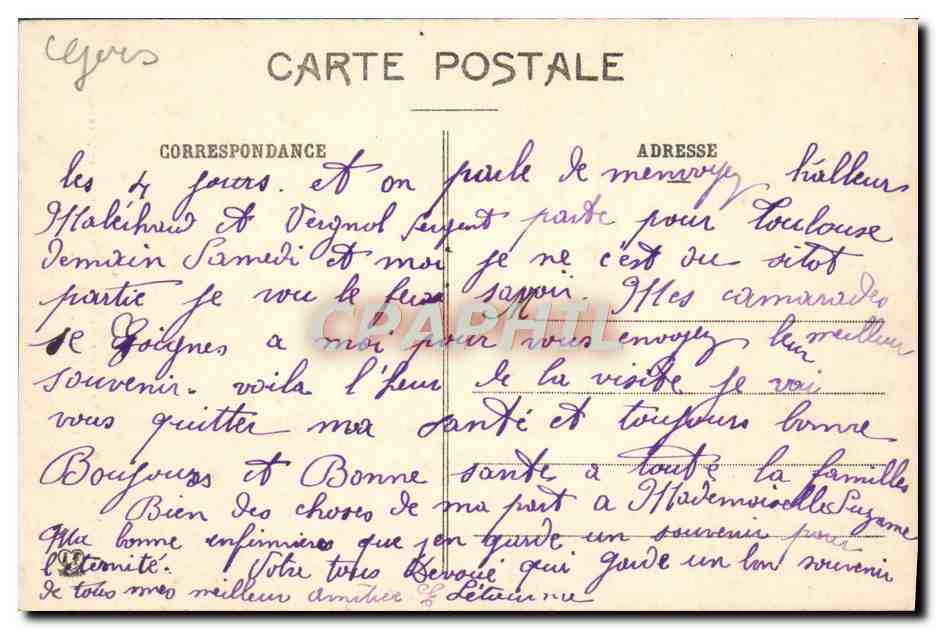 Gers
CARTE POSTALE
CORRESPONDANCE
ADRESSE
les 4 jours. et on parle de menvoyez hálleurs
Maléchaud et Vergnol Sergent parte pour Toulouse
demain Samedi et moi je ne c'est ou sitot
partie je vou le ferai savoir. Mes camarades
se Goignes a moi pour vous envoyez leur meilleur
souvenir. voila l'heur de la visite je vai
vous quitter ma santé et toujours bonne
Boujours et Bonne sante a toute la familles
Bien des choses de ma part a Mademoiselle Suzanne
Ma bonne enfirmière que j'en garde un souvenir pour
l'eternité. Votre tous Devoué qui garde un bon souvenir
de tous mes meilleur amitier
CPAPHIL